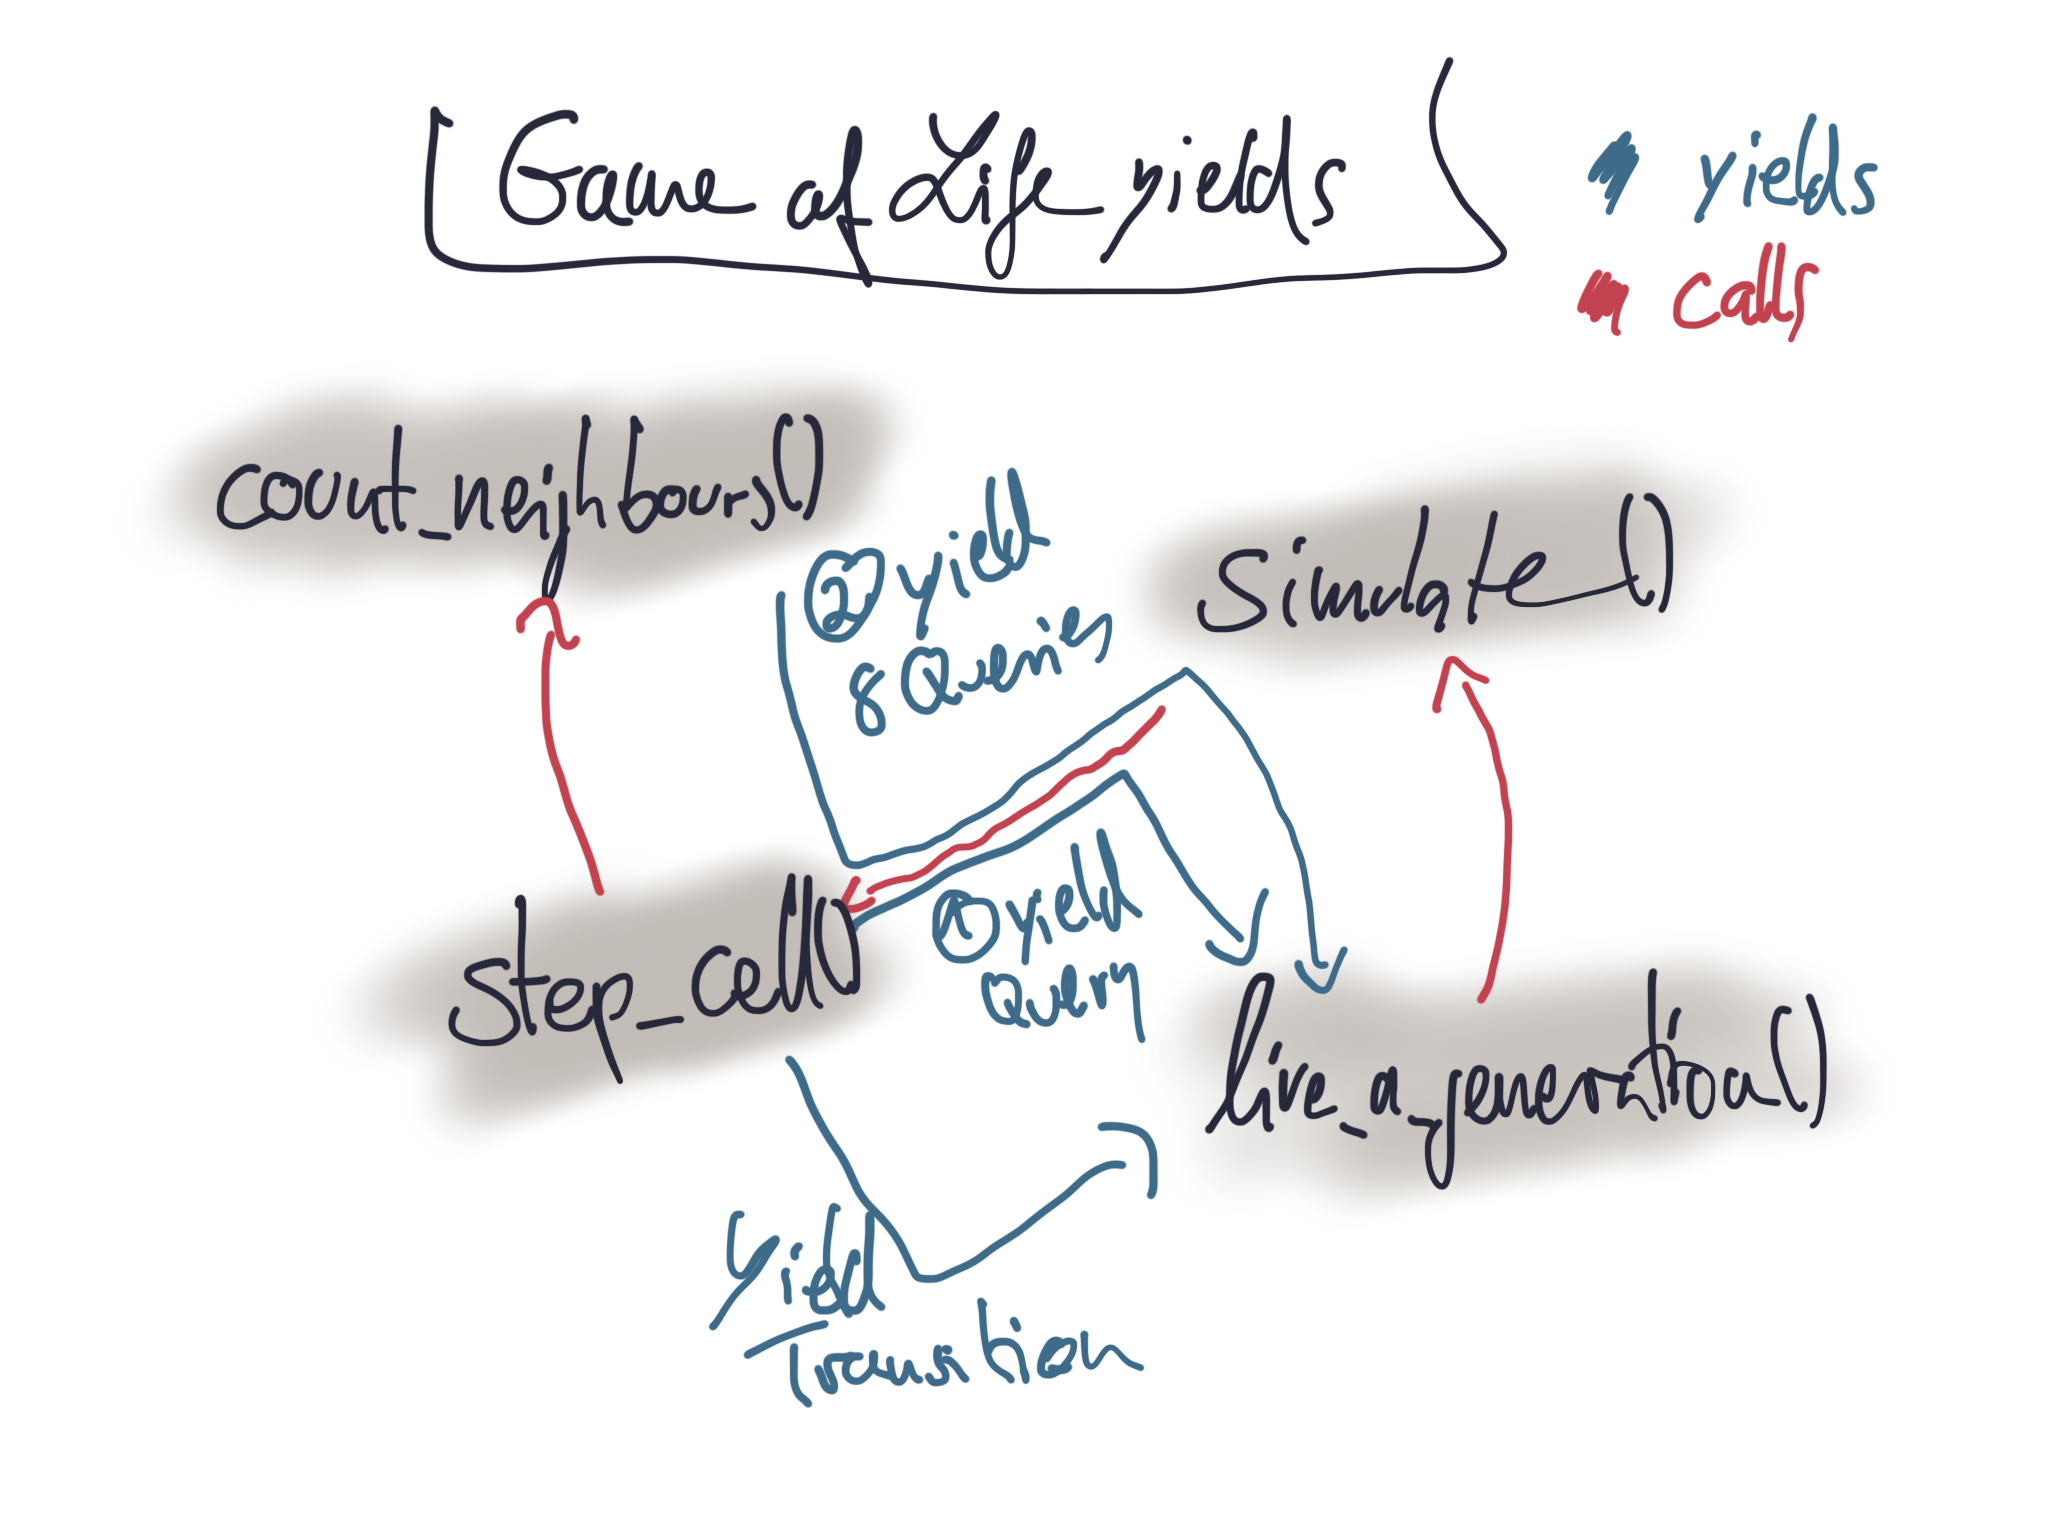 Game of Life yields
yields
calls
count_neighbours()
② yield
8 Queries
simulate()
step_cell()
① yield
Query
live_a_generation()
Yield
Transition